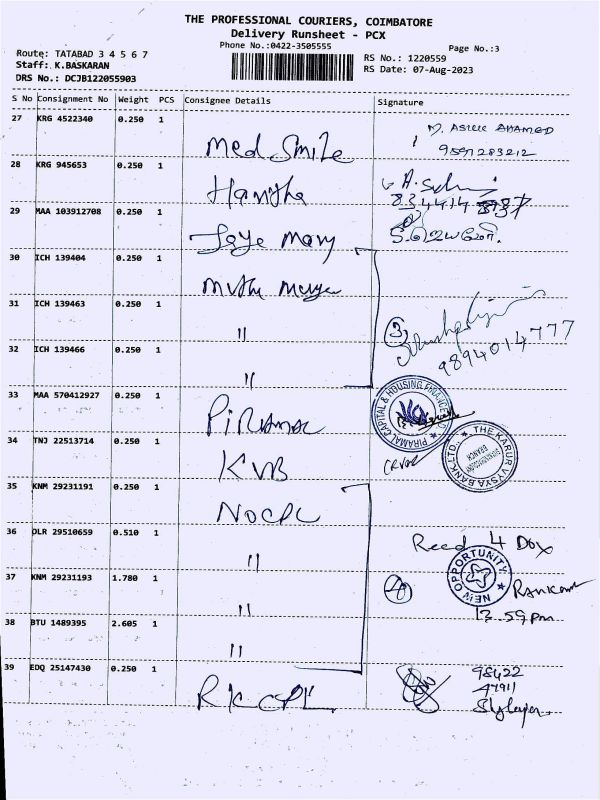 THE PROFESSIONAL COURIERS, COIMBATORE
Delivery Runsheet - PCX
Phone No.:0422-3505555
Page No.:3
Route: TATABAD 3 4 5 6 7
Staff: K.BASKARAN
DRS No.: DCJB122055903
RS No.: 1220559
RS Date: 07-Aug-2023
S No Consignment No Weight PCS Consignee Details Signature
27 KRG 4522340 0.250 1
Med Smile
9597283212
28 KRG 945653 0.250 1
29 MAA 103912708 0.250 1
Jaye Mary
30 ICH 139404 0.250 1
31 ICH 139463 0.250 1
"
3
9894014777
32 ICH 139466 0.250 1
"
33 MAA 570412927 0.250 1
PIRAMAL
PIRAMAL CAPITAL & HOUSING FINANCE
34 TNJ 22513714 0.250 1
KVB
THE KARUR VYSYA BANK LTD.,
BRANCH
35 KNM 29231191 0.250 1
NOCPL
36 DLR 29510659 0.510 1
"
Recd 4 Dox
NEW OPPORTUNITY
37 KNM 29231193 1.780 1
"
4
13.59pm
38 BTU 1489395 2.605 1
"
39 EDQ 25147430 0.250 1
RKCPL
98422
47911